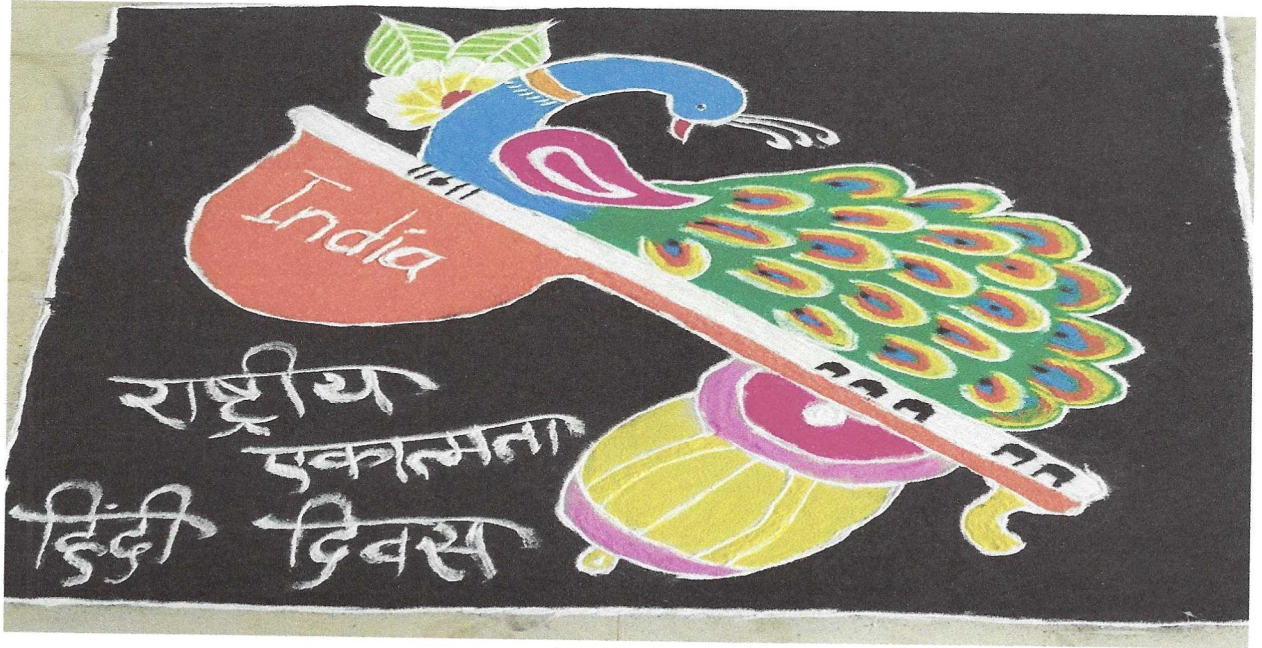 India
राष्ट्रीय
एकात्मता
हिंदी दिवस